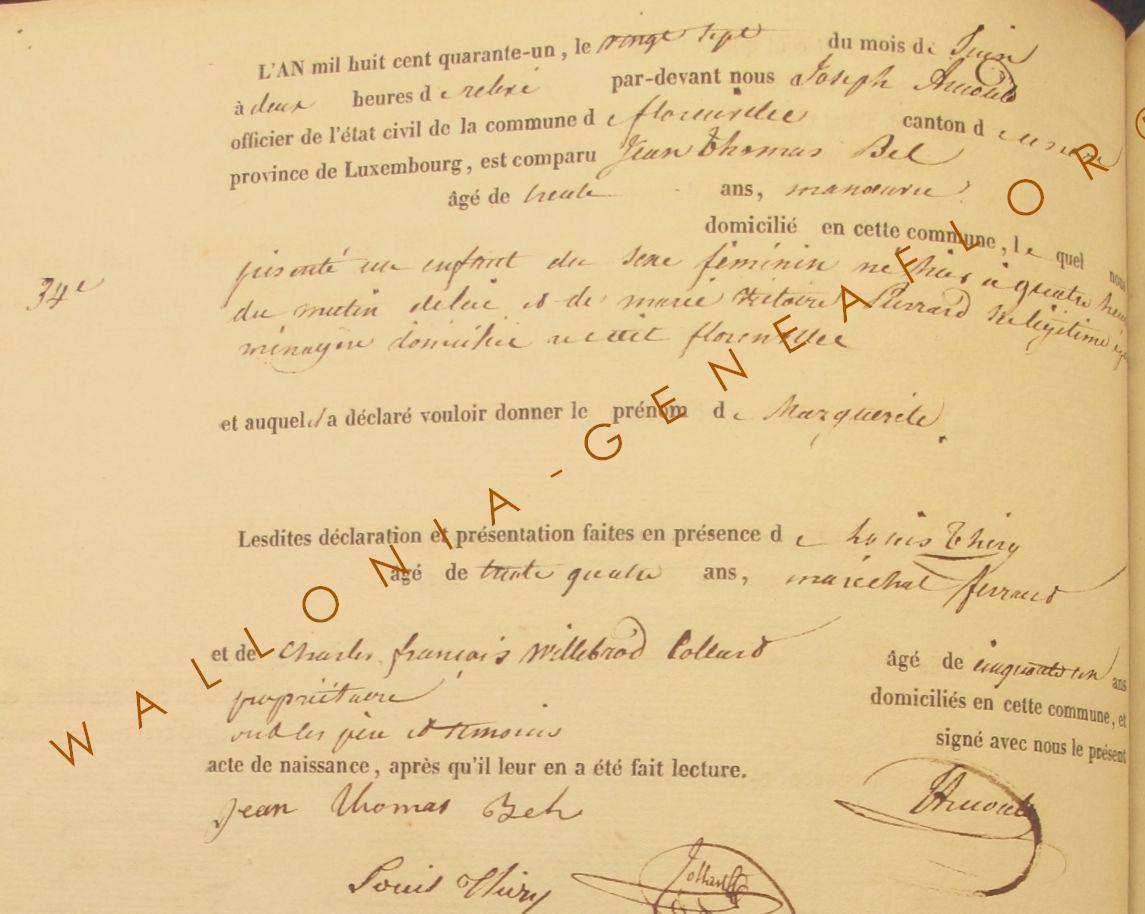 L'AN mil huit cent quarante-un, le vingt sept du mois de Juin
à deux heures de relevé par-devant nous Joseph Arnould
officier de l'état civil de la commune de florenville canton de
province de Luxembourg, est comparu Jean Thomas Bel
âgé de trente ans, manœuvre
domicilié en cette commune, le quel nous
34e
présenté un enfant du sexe féminin né hier à quatre heu
du matin de lui et de marie Pierrard sa légitime
ménagère domiciliée florenville
et auquel il a déclaré vouloir donner le prénom de Marguerite
Lesdites déclaration et présentation faites en présence de Louis Thiry
âgé de trente quatre ans, maréchal ferrant
et de Charles françois Willebrod Collard âgé de cinquante un ans
propriétaire domiciliés en cette commune, et
ont les père et témoins signé avec nous le présent
acte de naissance, après qu'il leur en a été fait lecture.
Jean Thomas Beh Arnould
Louis Thiry Collard
WALLONIA-GENEAFLOR